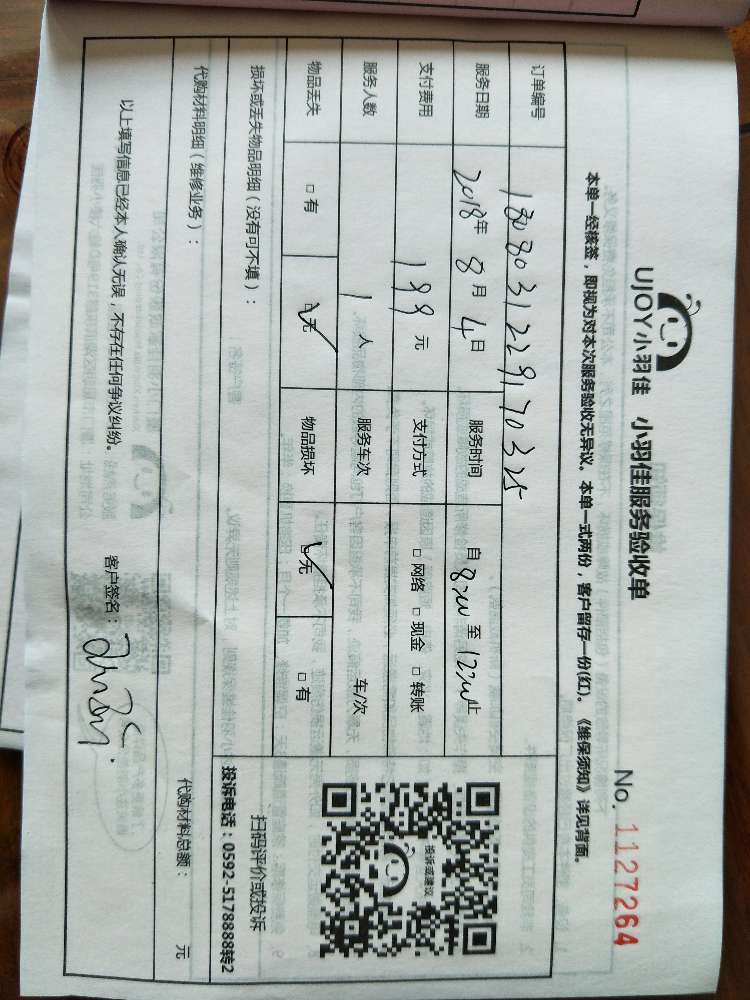 UJOY小羽佳 小羽佳服务验收单
No. 1127264
本单一经核签，即视为对本次服务验收无异议。本单一式两份，客户留存一份(红)。《维保须知》详见背面。
订单编号 1808031229170325
服务日期 2018年 8月 4日 服务时间 自8:00至12:00止
支付费用 199元 支付方式 □网络 □现金 □转账
服务人数 1人 服务车次 车/次
物品丢失 □有 ☑无 物品损坏 ☑无 □有
投诉或建议
扫码评价或投诉
投诉电话：0592-5178888转2
损坏或丢失物品明细（没有可不填）：
代购材料明细（维修业务）： 代购材料总额： 元
以上填写信息已经本人确认无误，不存在任何争议纠纷。 客户签名：